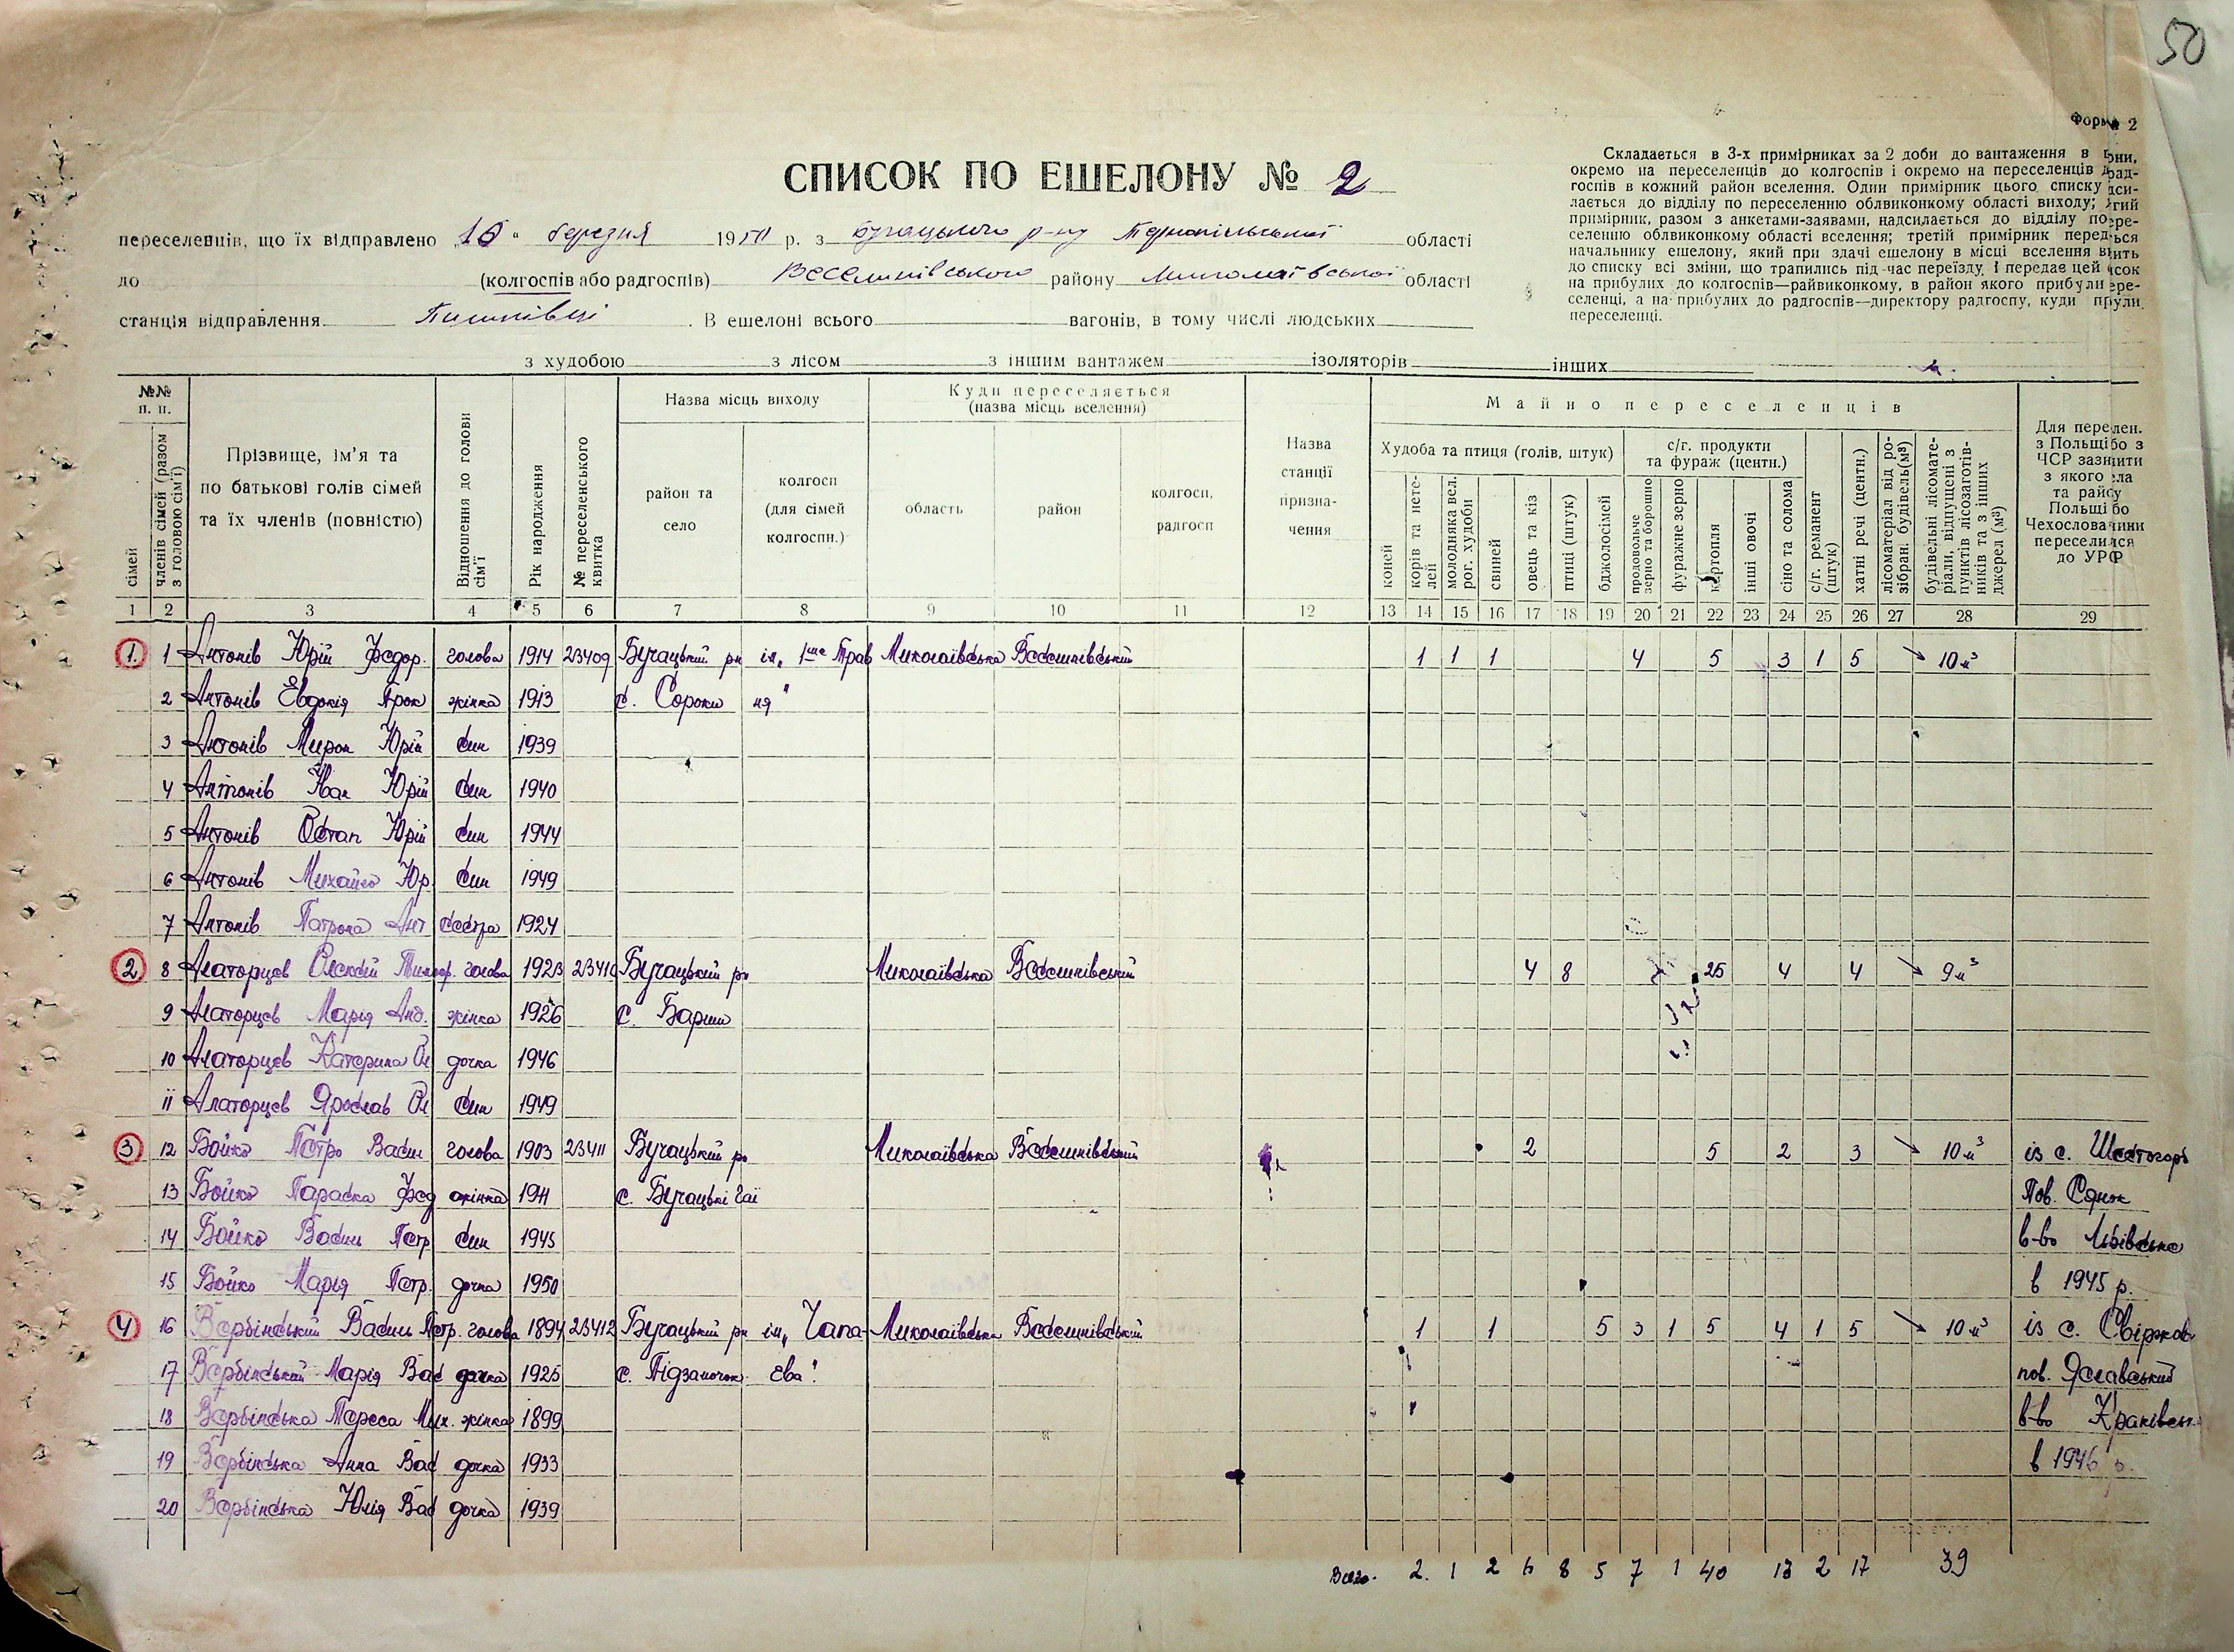 50
Форма 2
СПИСОК ПО ЕШЕЛОНУ № 2
Складається в 3-х примірниках за 2 доби до вантаження в
окремо на переселенців до колгоспів і окремо на переселенців
госпів в кожний район вселення. Один примірник цього списку
лається до відділу по переселенню облвиконкому області виходу;
примірник, разом з анкетами-заявами, надсилається до відділу по
селенню облвиконкому області вселення; третій примірник
начальнику ешелону, який при здачі ешелону в місці вселення
до списку всі зміни, що трапились під час переїзду, і передає цей
на прибулих до колгоспів—райвиконкому, в район якого прибули
селенці, а на прибулих до радгоспів—директору радгоспу, куди
переселенці.
переселенців, що їх відправлено 16 " березня 19 р. з бучацького р-ну Тернопільської області
до (колгоспів або радгоспів) Веселинівського району Миколаївської області
станція відправлення Пишківці. В ешелоні всього вагонів, в тому числі людських
з худобою з лісом з іншим вантажем ізоляторів інших
№№ п. п.
сімей
членів сімей (разом з головою сім'ї)
Прізвище, ім'я та по батькові голів сімей та їх членів (повністю)
Відношення до голови сім'ї
Рік народження
№ переселенського квитка
Назва місць виходу
район та село
колгосп (для сімей колгоспн.)
Куди переселяється (назва місць вселення)
область
район
колгосп, радгосп
Назва станції призна-чення
Майно переселенців
Худоба та птиця (голів, штук)
коней
корів та нете-лей
молодняка вел. рог. худоби
свиней
овець та кіз
птиці (штук)
бджолосімей
с/г. продукти та фураж (центн.)
продовольче зерно та борошно
фуражне зерно
картопля
інші овочі
сіно та солома
с/г. реманент (штук)
хатні речі (центн.)
лісоматеріал від ро-зібрані. будівель(м³)
будівельні лісомате-ріали, відпущені з пунктів лісозаготів-ників та з інших джерел (м³)
Для
з Польщі
ЧСР
з якого
та
Польщі
переселився
до
1 2 3 4 5 6 7 8 9 10 11 12 13 14 15 16 17 18 19 20 21 22 23 24 25 26 27 28 29
1. 1 Антонів Юрій Федор. голова 1914 23409 Бучацький рн ім. 1ше Трав Миколаївська Веселинівський 1 1 1 4 5 3 1 5 10 м³
2 Антонів Евдокія Прок жінка 1913 с. Сороки ня"
3 Антонів Мирон Юрій син 1939
4 Антонів Іван Юрій син 1940
5 Антонів Остап Юрій син 1944
6 Антонів Михайло Юр. син 1949
7 Антонів Ант сестра 1924
2. 8 Алаторцев Олексій голова 1923 23410 Бучацький рн Миколаївська Веселинівський 4 8 25 4 4 9 м³
9 Алаторцев Марія Анд. жінка 1926 с. Бариш
10 Алаторцев Катерина Ол дочка 1946
11 Алаторцев Ярослав Ол син 1949
3 12 Бойко Петро Васил голова 1903 23411 Бучацький рн Миколаївська Веселинівський 2 5 2 3 10 м³ із с.
13 Бойко Параска Фед жінка 1911 с. Бучацькі Гаї Пов. Сянок
14 Бойко Василь Петр син 1945 в-во Львівська
15 Бойко Марія Петр. дочка 1950 в 1945 р.
4 16 Вербінський Василь Петр. голова 1894 23412 Бучацький рн ім. Чапа- Миколаївська Веселинівський 1 1 5 3 1 5 4 1 5 10 м³ із с.
17 Вербінський Марія Вас дочка 1925 с. Підзамочок ева" пов.
18 Вербінська Тереса Мих. жінка 1899 в-во
19 Вербінська Анна Вас дочка 1933 в 1946 р.
20 Вербінська Юлія Вас дочка 1939
Всего. 2. 1 2 6 8 5 7 1 40 13 2 17 39